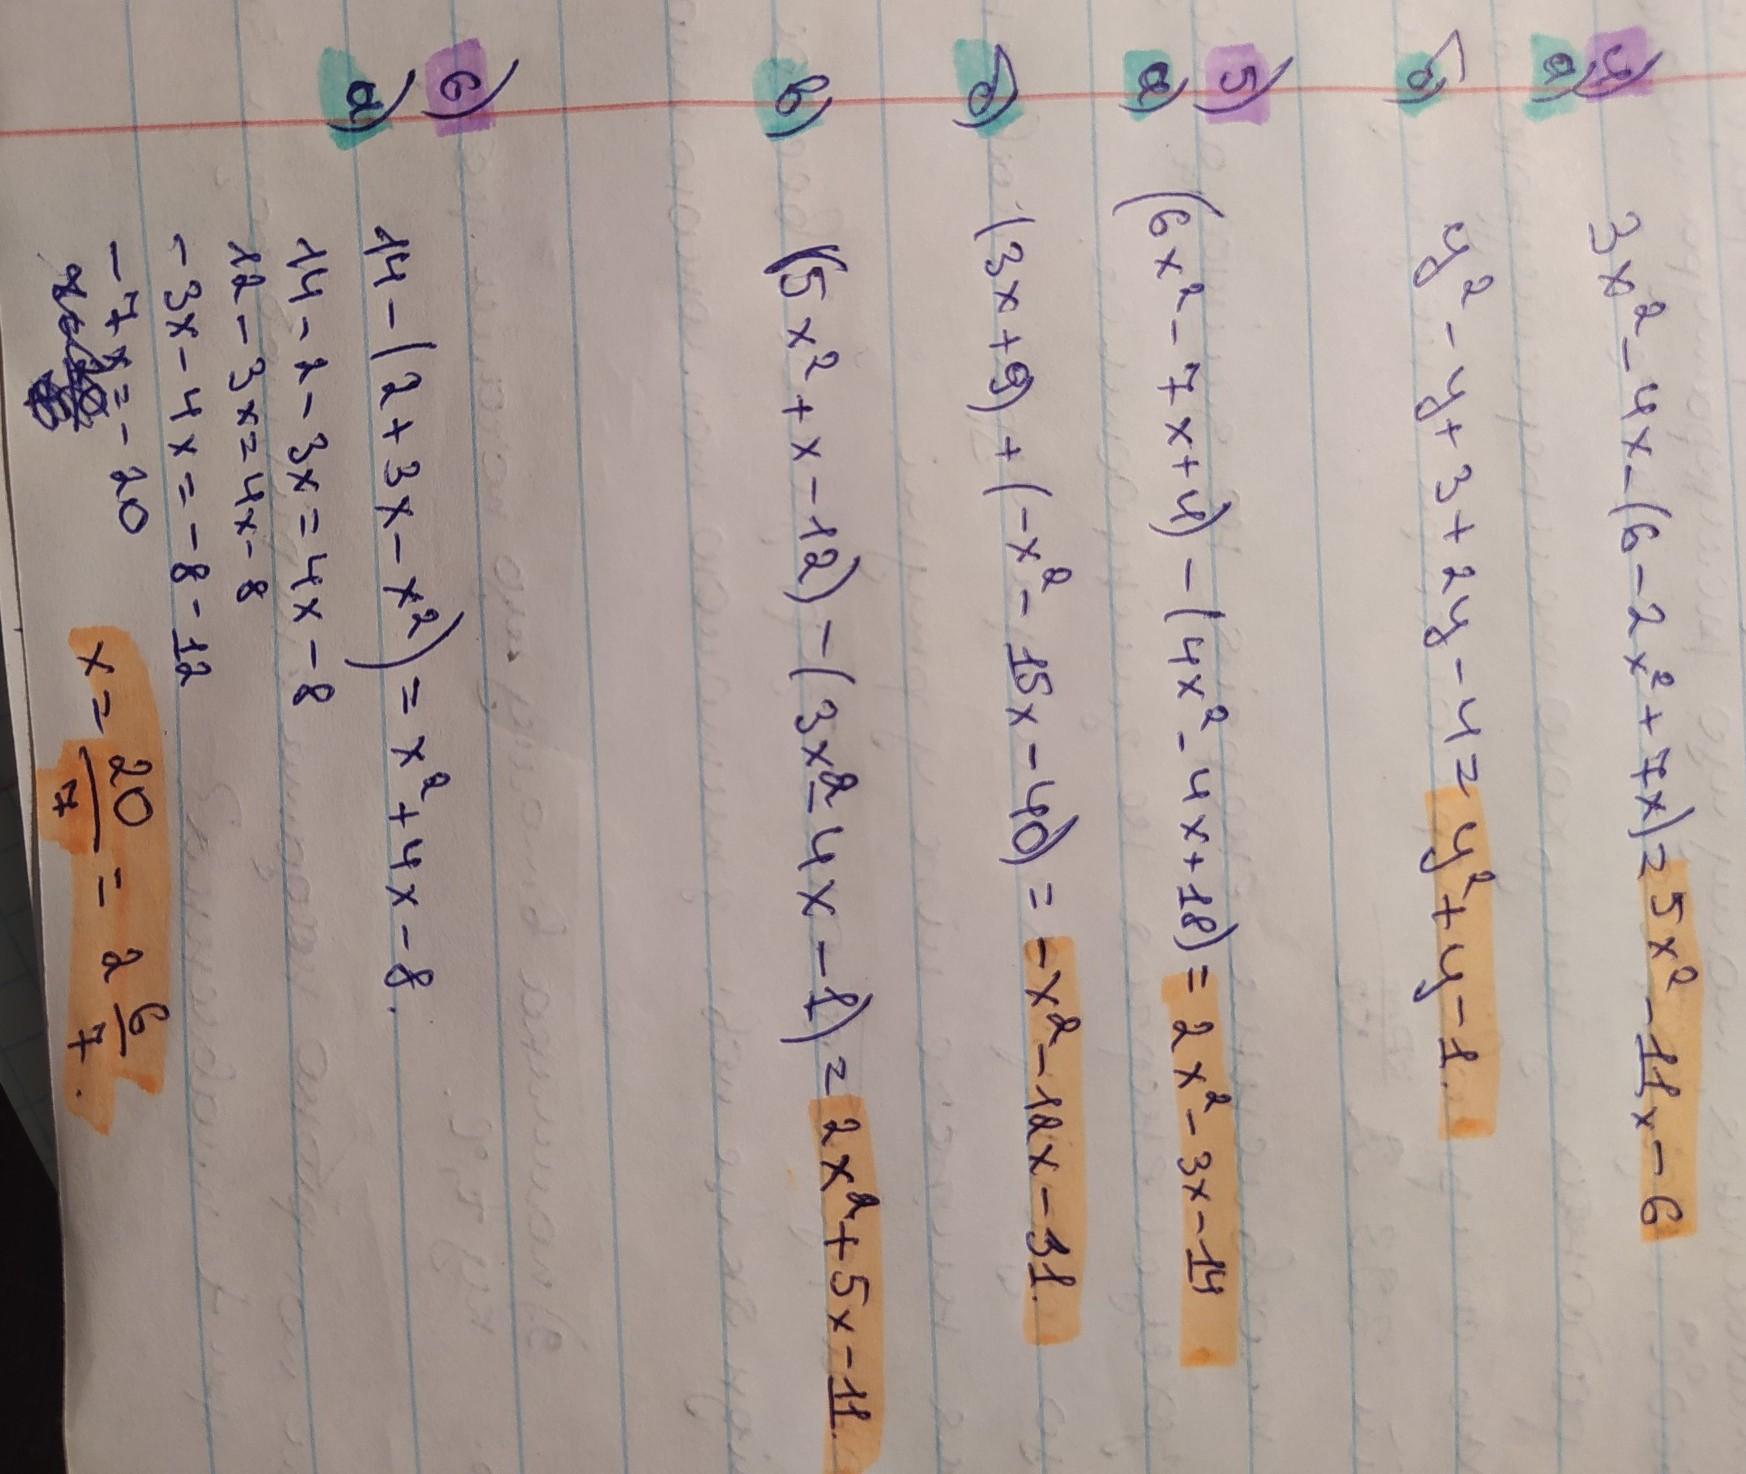 4)
а) 3x² - 4x - (6 - 2x² + 7x) = 5x² - 11x - 6
б) y² - y + 3 + 2y - 4 = y² + y - 1.
5)
а) (6x² - 7x + 4) - (4x² - 4x + 18) = 2x² - 3x - 14
б) (3x + 9) + (-x² - 15x - 40) = -x² - 12x - 31.
в) (5x² + x - 12) - (3x² - 4x - 1) = 2x² + 5x - 11.
6)
а) 14 - (2 + 3x - x²) = x² + 4x - 8.
14 - 2 - 3x = 4x - 8
12 - 3x = 4x - 8
- 3x - 4x = - 8 - 12
- 7x = - 20
x = 20/7 = 2 6/7.